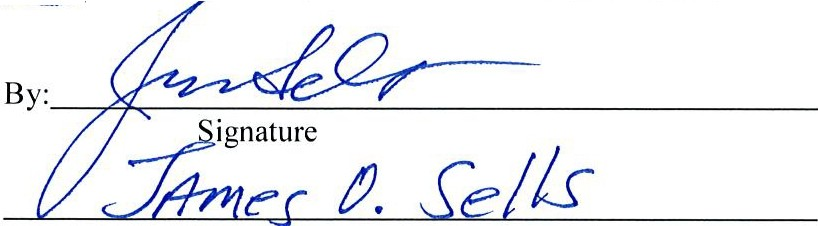 By: Jim Sells
Signature
JAMES O. Sells